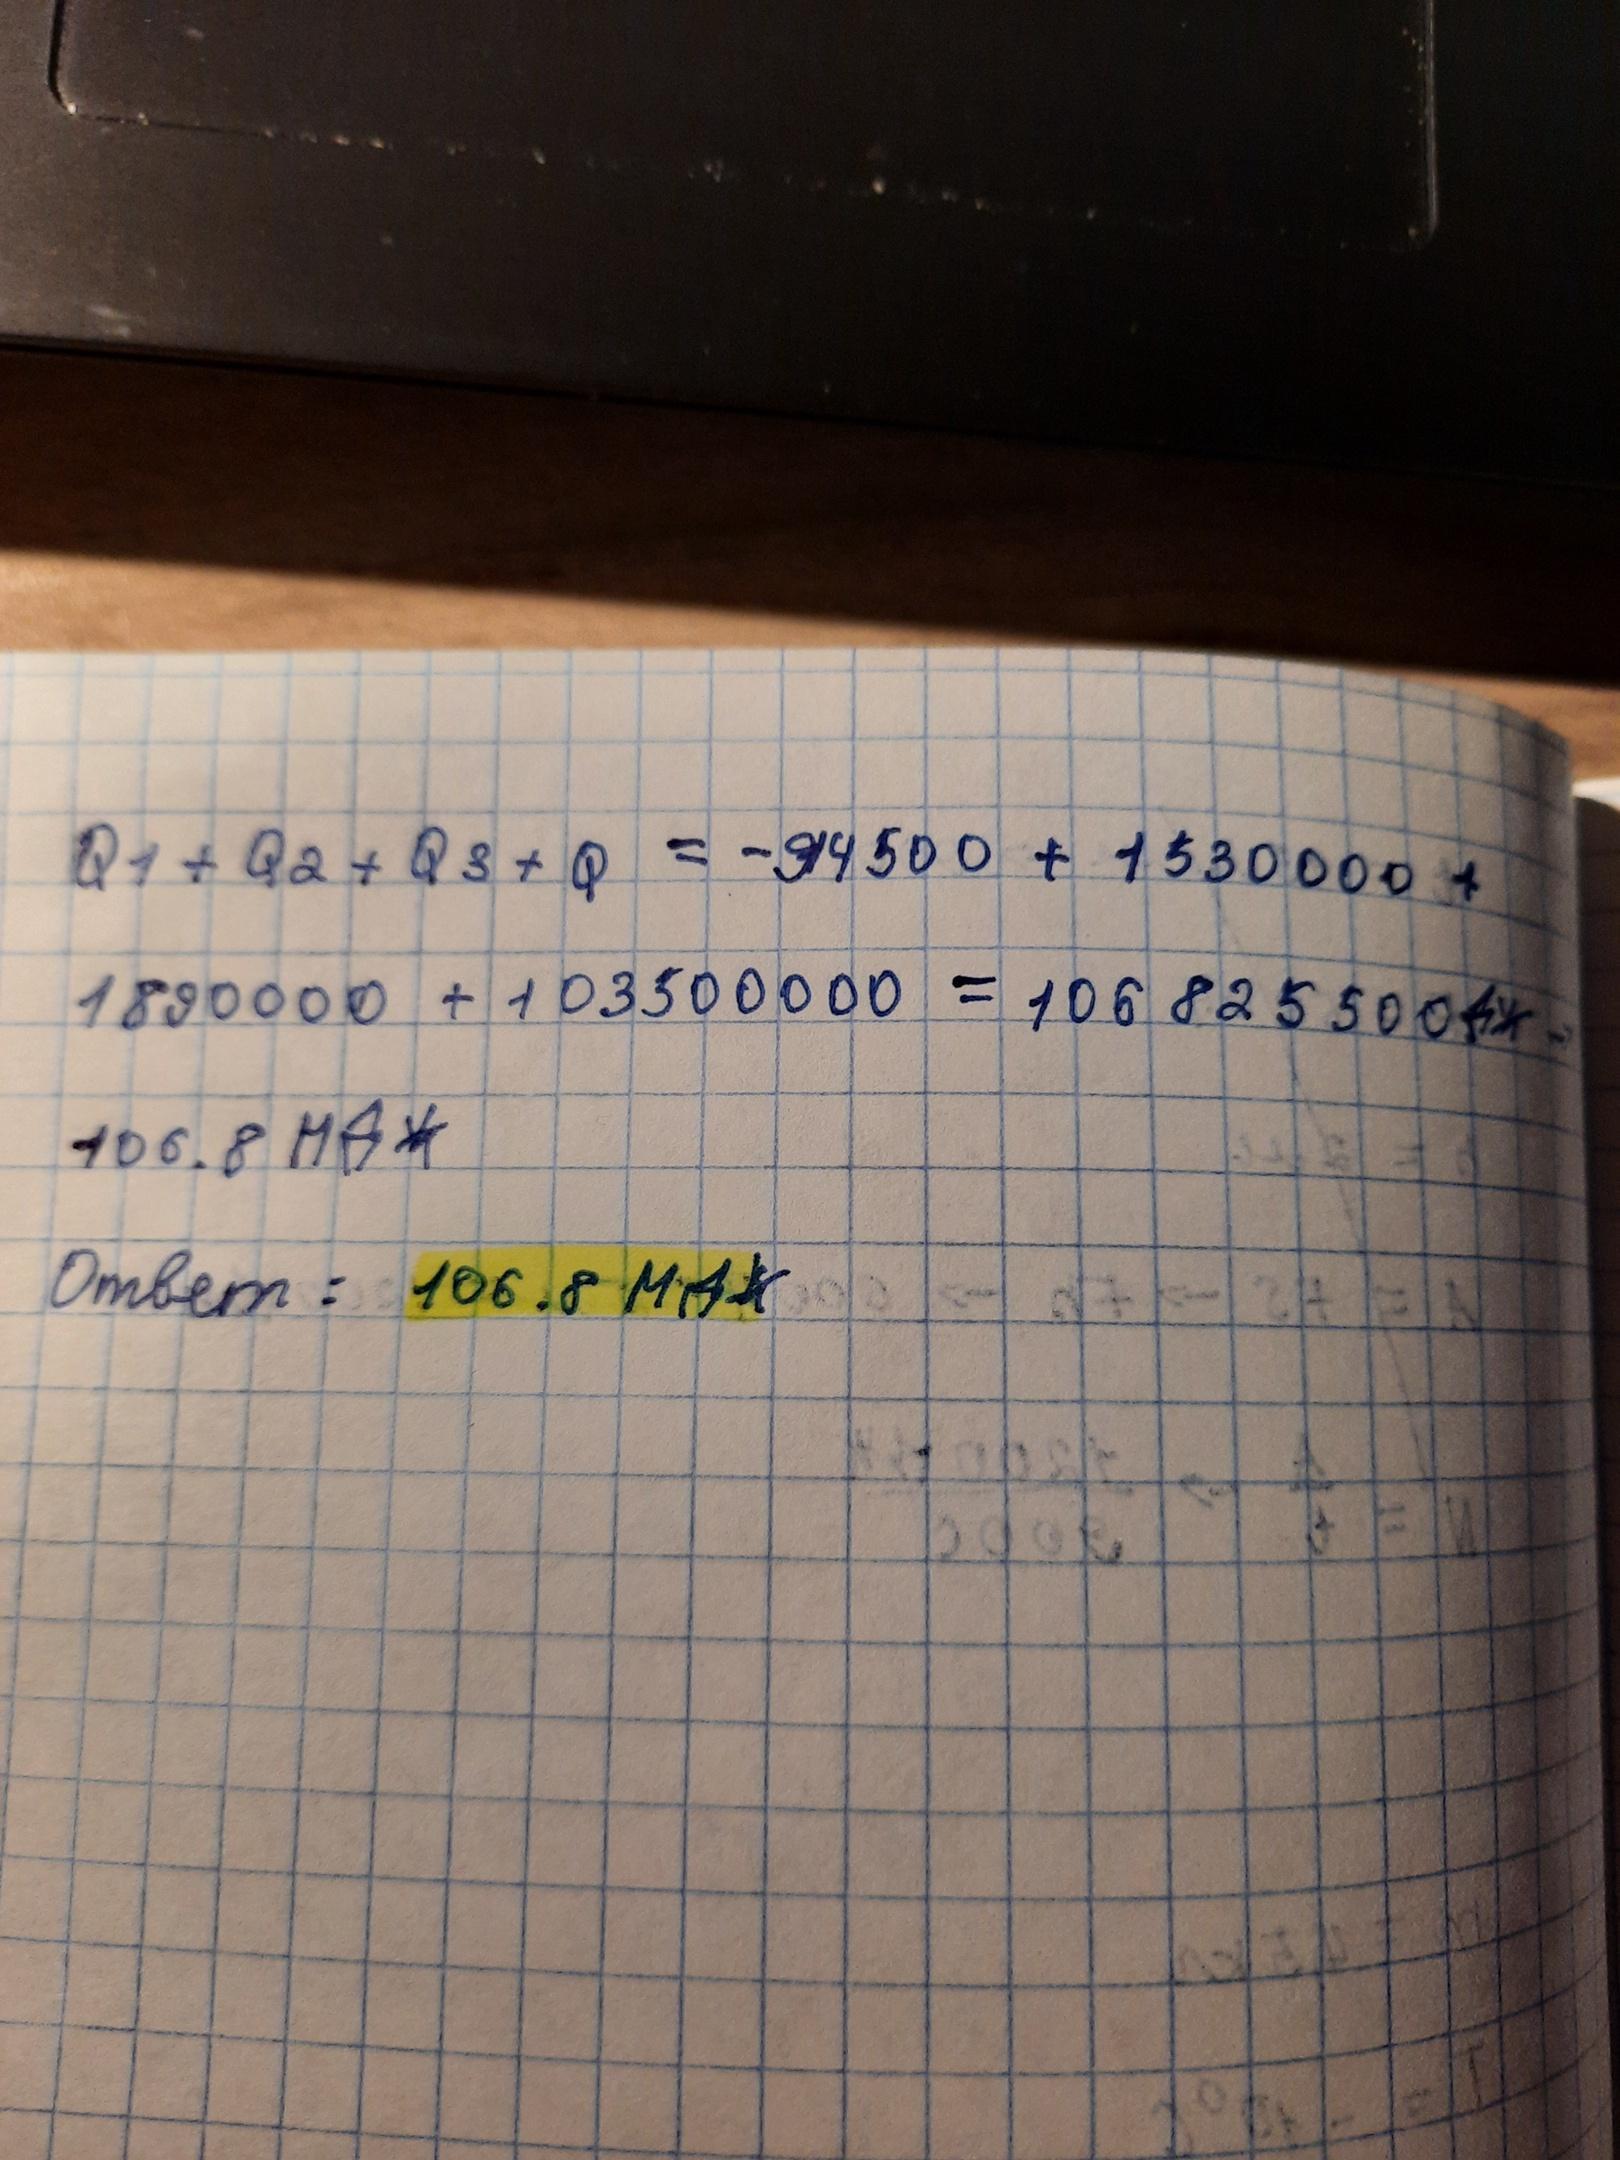 Q1 + Q2 + Q3 + Q = -94500 + 1530000 +
1890000 + 103500000 = 106825500Дж =
106.8 МДж
Ответ: 106.8 МДж